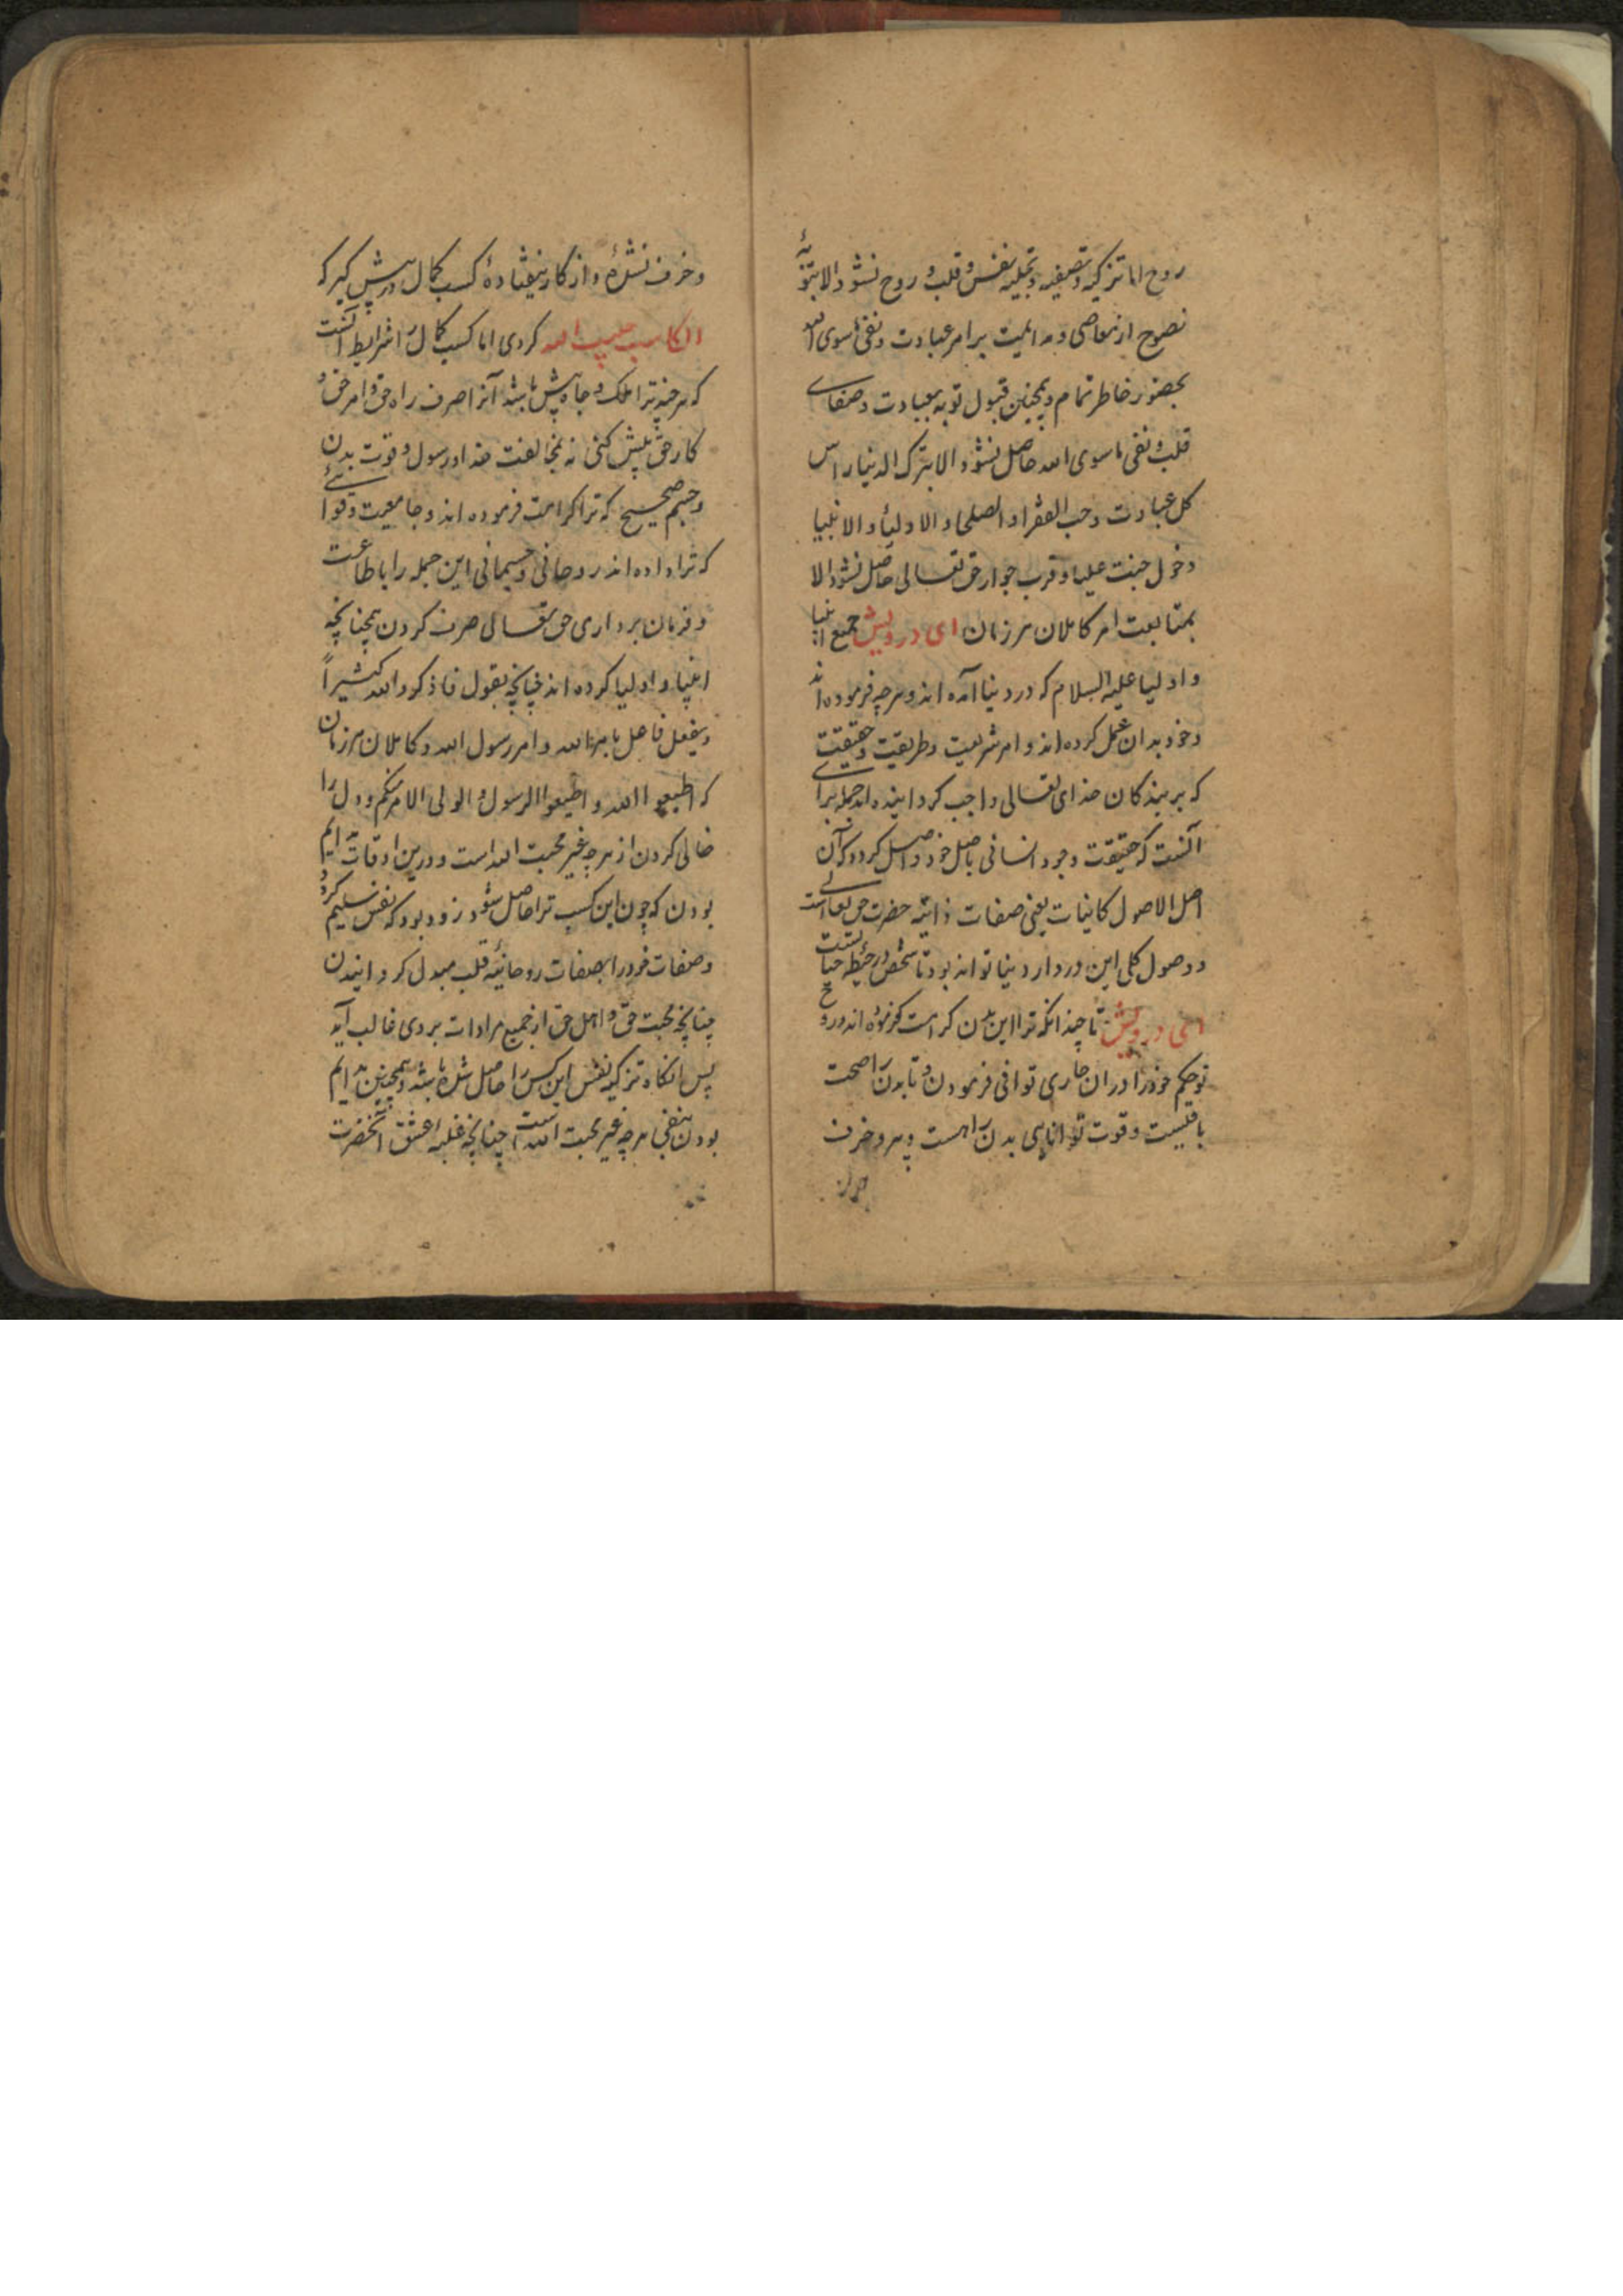 روح اما تزکیه و تصفیه و تجلیه نفس و قلب و روح نشود الا بتوبهٔ
نصوح از معاصی و مداومیت بر امر عبادت و نفی ماسوی الله
بحضور خاطر تمام و همچنین قبول توبه بعبادت و صفای
قلب و نفی ماسوی الله حاصل نشود الا بترک الدنیا راس
کل عبادت و حب الفقراء و الصلحاء و الاولیاء و الانبیا
دخول جنت علیا و قرب جوار حق تعالی حاصل نشود الا
بمتابعت امر کاملان هر زمان ای درویش جمیع انبیا
و اولیا علیه السلام که در دنیا آمده اند و هرچه فرموده اند
و خود بدان عمل کرده اند و امر شریعت و طریقت و حقیقت
که بر بندکان خدای تعالی واجب کردانیده اند جمله برای
آنست که حقیقت وجود انسانی باصل خود واصل کردد که آن
اصل الاصول کاینات یعنی صفات ذاتیه حضرت حق تعالی است
و وصول کلی این در دار دنیا تواند بود تا شخص در حیطه حیاتست
ای درویش تا چندانکه ترا این بدن کرامت فرموده اند و روح
تو حکم خود را در ان جاری توانی فرمودن و تا بدن را صحت
باقیست و قوت توانایی بدن را هست و هر و خرف
و خرف نشدهٔ و از کار نیفتادهٔ کسب کمال در پیش کیر که
الکاسب حبیب الله کردی اما کسب کمال را شرایط آنست
که هر چند ترا ملک و جاه پیش باشد آنرا صرف راه حق و امر حق و
کار حق پیش کنی نه بمخالفت خدا و رسول و قوت بدن
و جسم صحیح که ترا کرامت فرموده اند و جامعیت و قوای
که ترا داده اند روحانی و جسمانی این جمله را باطاعت
و فرمان برداری حق تعالی صرف کردن همچنانچه
انبیا و اولیا کرده اند چنانچه بقول فاذکروا الله کثیراً
و بفعل فاصل بامر الله و امر رسول الله و کاملان هر زمان
که اطیعوا الله و اطیعوا الرسول و الولی الامر منکم و دل را
خالی کردن از هرچه غیر محبت الله است و درین اوقات دایم
بودن که چون این کسب ترا حاصل شود زود بود که نفس تسلیم کردد و
و صفات خود را بصفات روحانیهٔ قلب مبدل کردانیدن
چنانچه محبت حق و اهل حق از جمیع مرادات بر وی غالب آید
پس انکاه تزکیه نفس این کس را حاصل شده باشد و همچنین دایم
بودن بنفی هرچه غیر محبت الله است چنانچه غلبه عشق آنحضرت